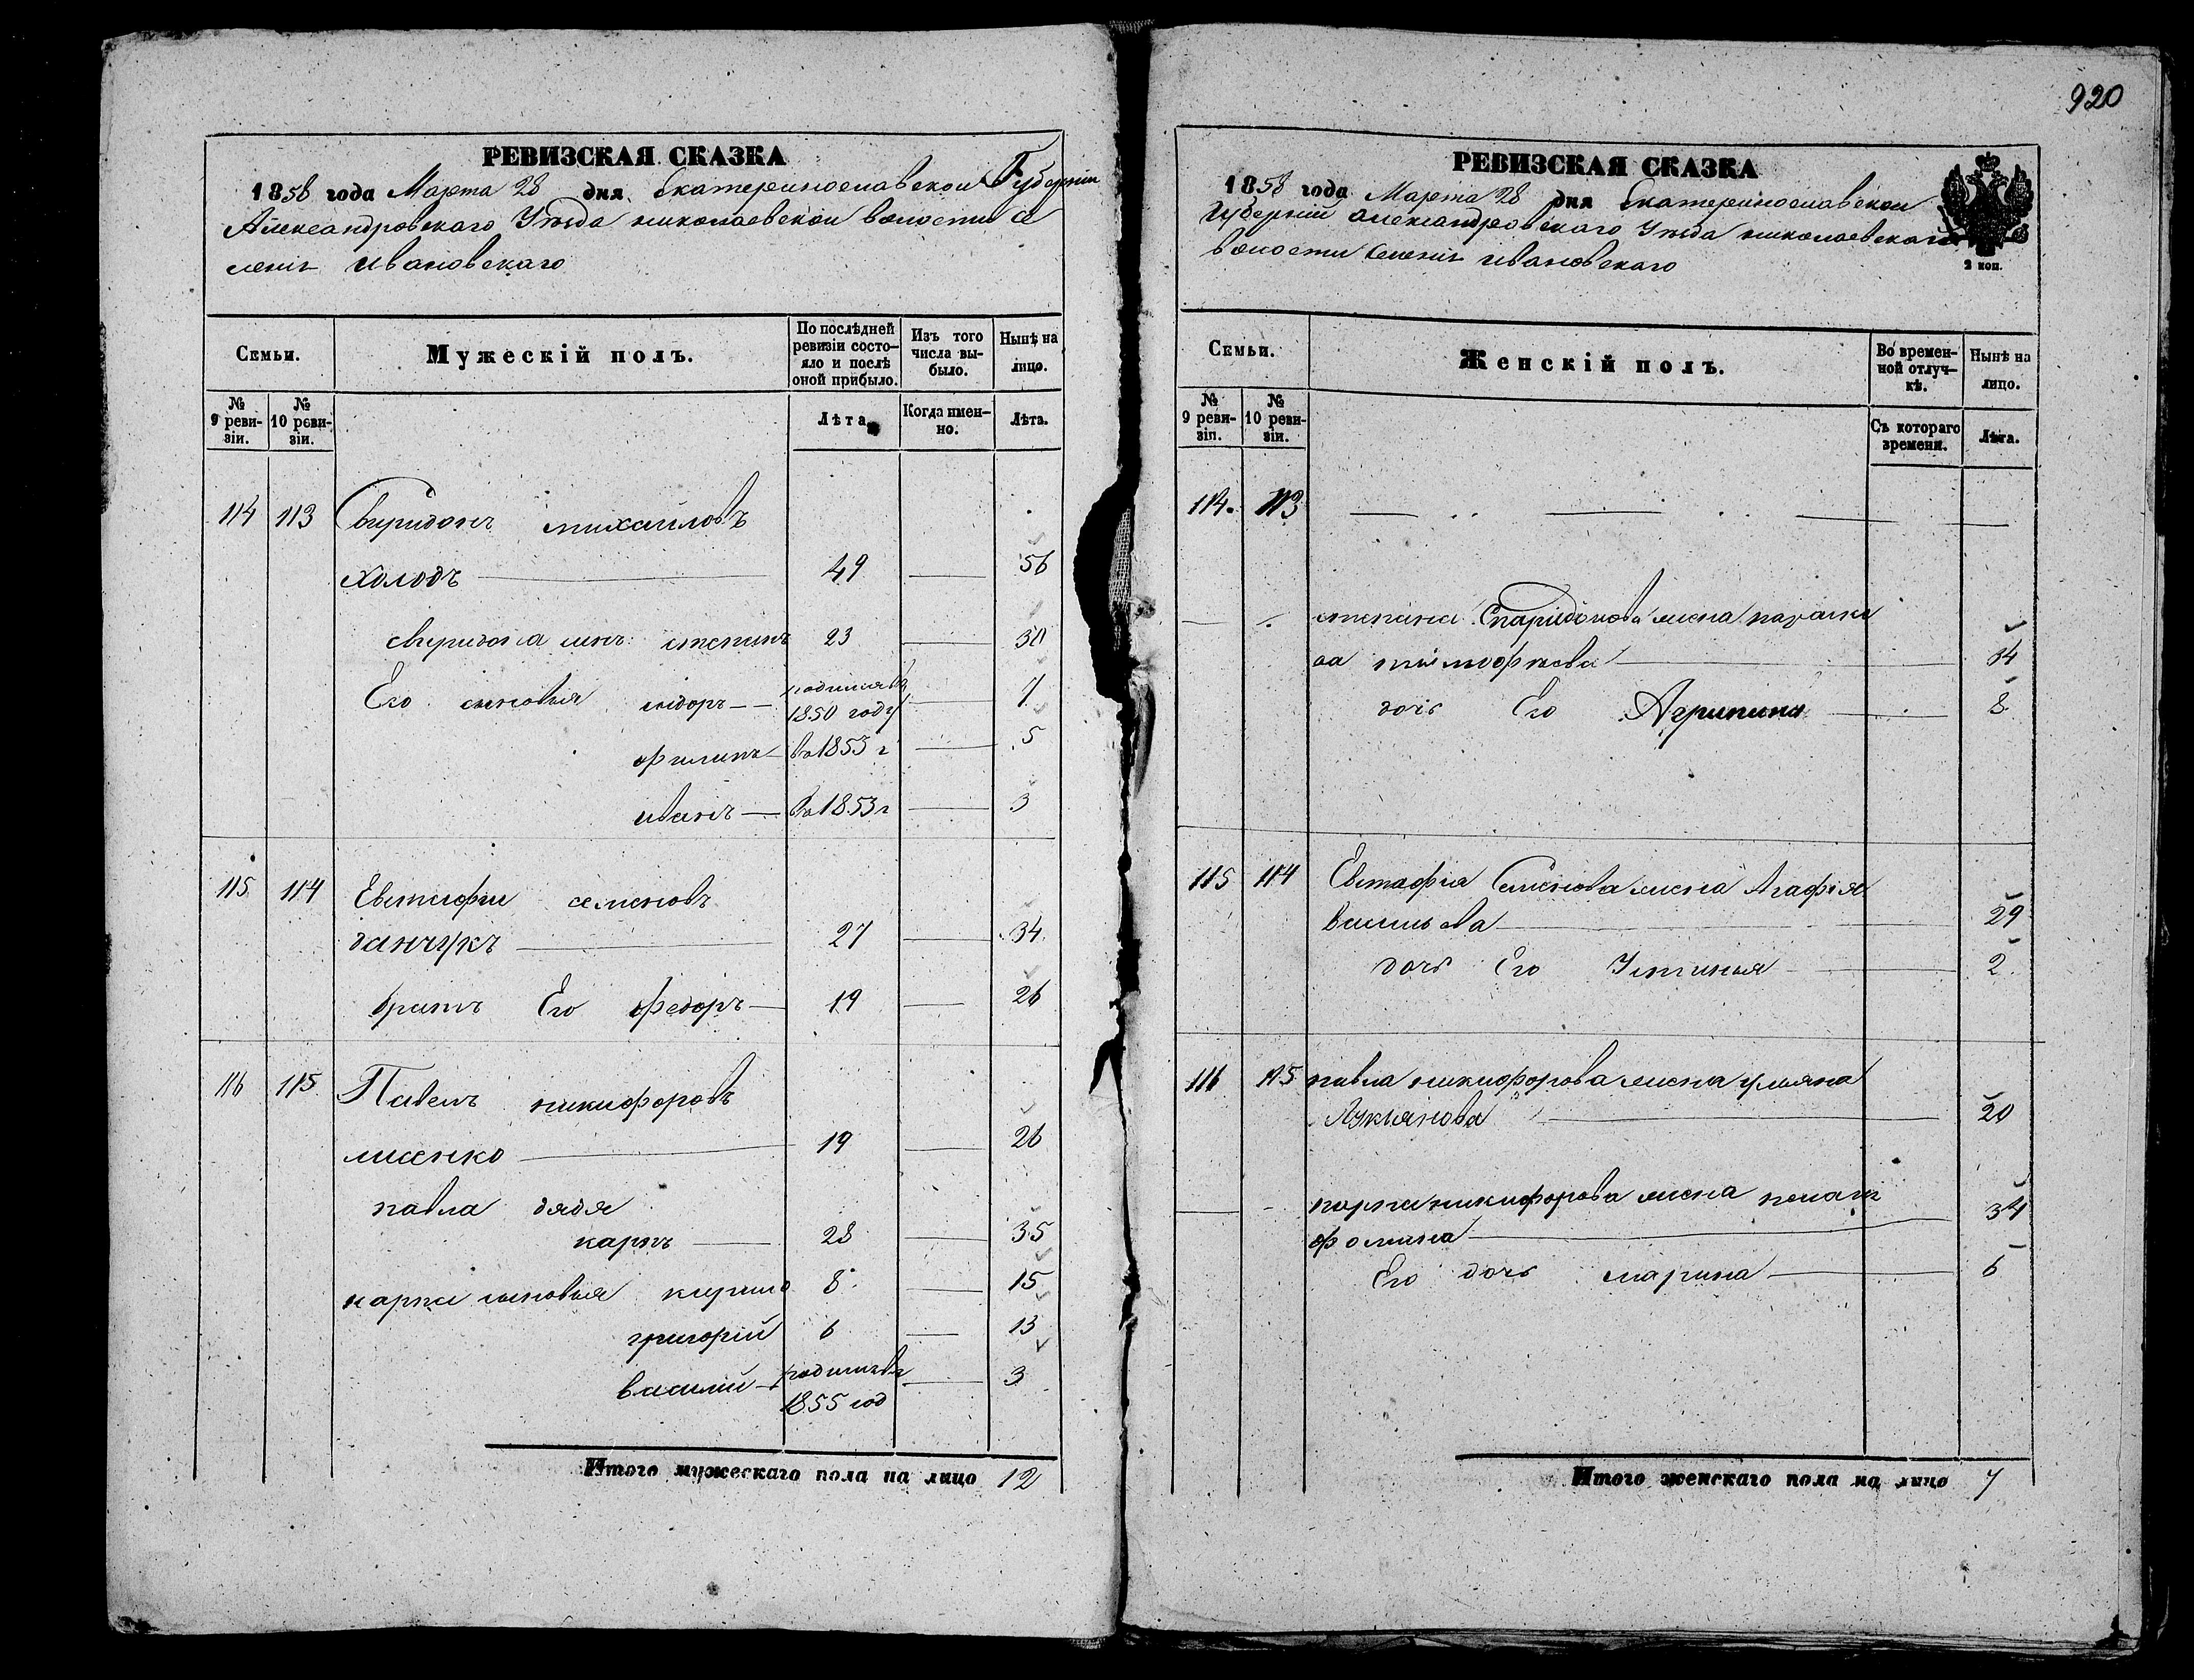 920
РЕВИЗСКАЯ СКАЗКА
1858 года Марта 28 дня Екатеринославской Губернии
Александровскаго Уезда николаевской волости се
ления Ивановскаго
Семьи.
Мужескій полъ.
По послѣдней ревизіи состояло и послѣ оной прибыло.
Изъ того числа выбыло.
Нынѣ на лицо.
№ 9 ревизіи.
№ 10 ревизіи.
Лѣта
Когда именно.
Лѣта.
114 113 Свиридонъ михайловъ
холодъ 49 56
свиридона сынъ степанъ 23 30
Его сыновья сидоръ родился въ 1850 году 7
филипъ въ 1853 г 5
иванъ въ 1853 г 3
115 114 Евстафи семеновъ
ганчукъ 27 34
братъ Его федоръ 19 26
116 115 Павелъ никифоровъ
лисенко 19 26
павла дядя
карпъ 28 35
карпа сыновья кирило 8 15
григорій 6 13
василий родился въ 1855 год 3
Итого мужескаго пола на лицо 12
РЕВИЗСКАЯ СКАЗКА
1858 года Марта 28 дня Екатеринославской
Губернии александровскаго Уезда николаевскаго
волости селения ивановскаго
2 коп.
Семьи.
Женскій полъ.
Во временной отлучкѣ.
Нынѣ на лицо.
№ 9 ревизіи.
№ 10 ревизіи.
Съ котораго времени.
Лѣта.
114. 113
степана Спиридонова жена параске
ва 34
дочь Его Агрипина 8
115 114 Евстафия Семенова жена Агафия
васильева 29
дочь Его Устинья 2
116 115 павла никифорова жена ульяна
Лукьянова 20
карпа никифорова жена пелагия
фомина 34
Его дочь марина 6
Итого женскаго пола на лицо 7